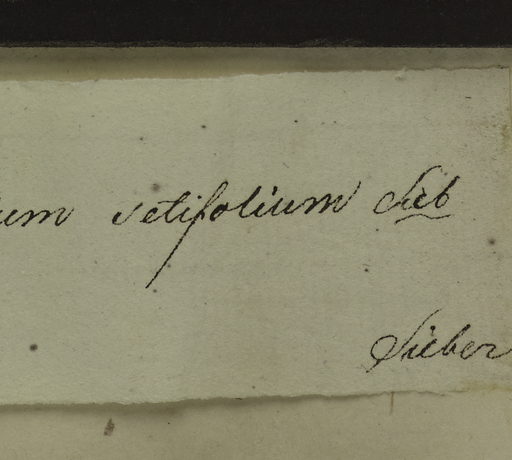 um setifolium Sieb
Sieber